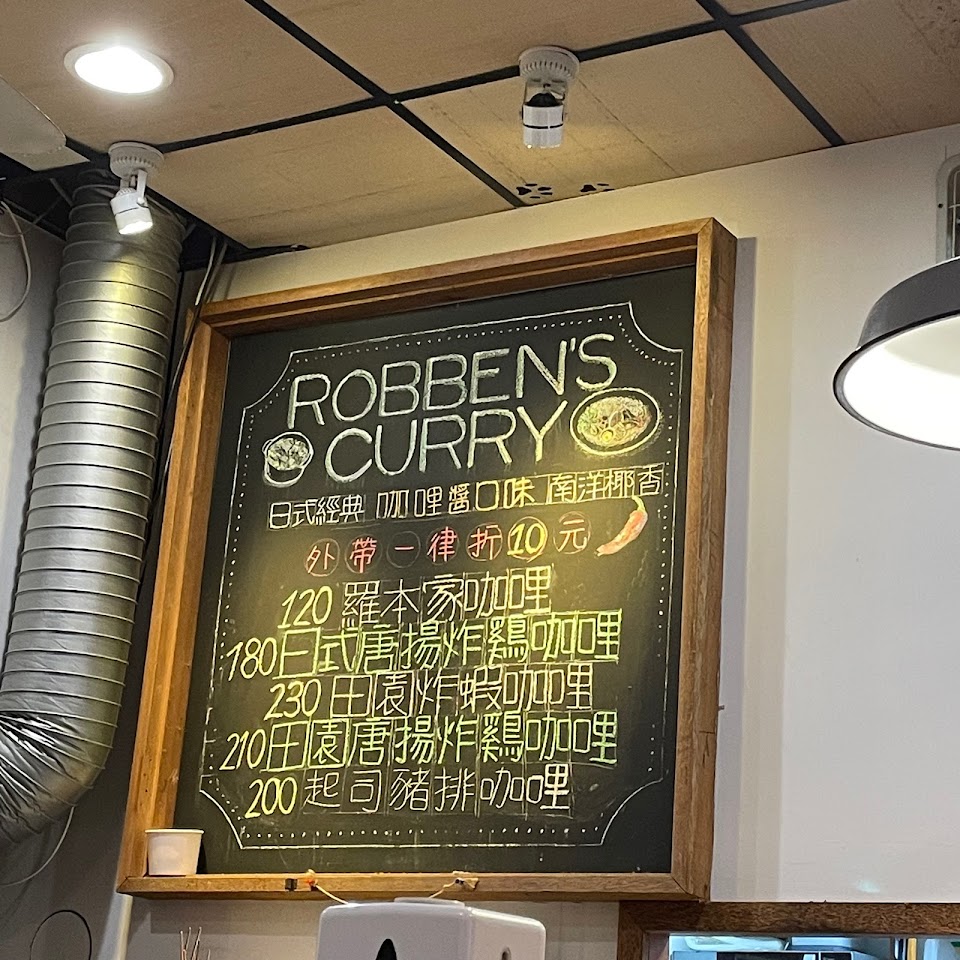 ROBBEN'S
CURRY
日式經典 咖哩醬口味 南洋椰香
外帶一律折10元
120 羅本家咖哩
180日式唐揚炸鷄咖哩
230 田園炸蝦咖哩
210田園唐揚炸鷄咖哩
200 起司豬排咖哩